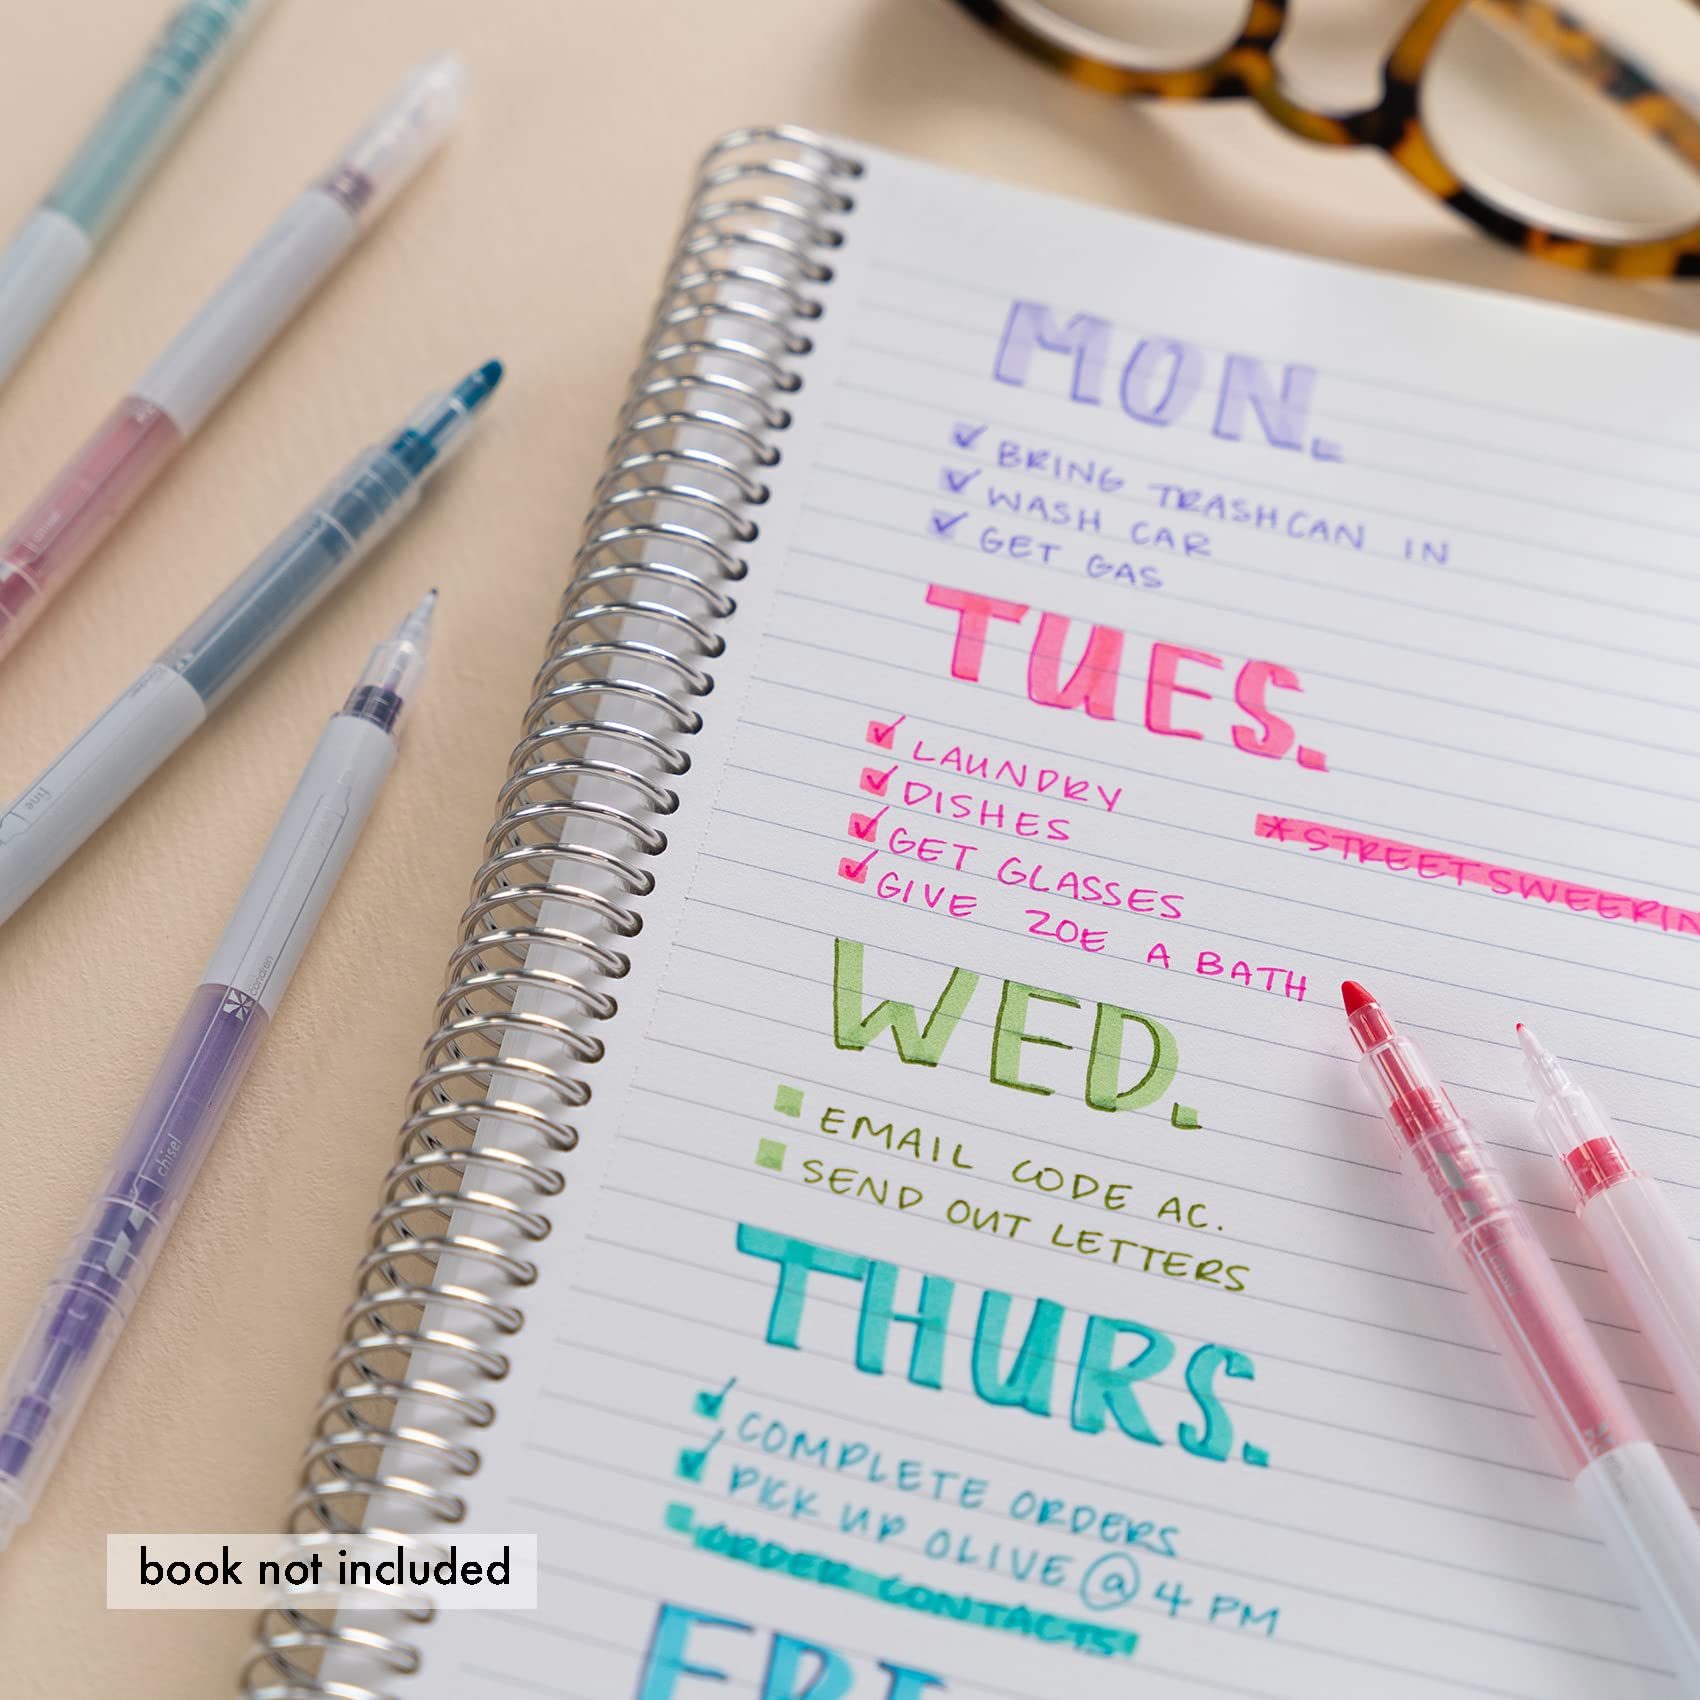 MON.
BRING TRASHCAN IN
WASH CAR
GET GAS
TUES.
LAUNDRY
DISHES
GET GLASSES
GIVE ZOE A BATH
*STREET SWEEPIN
WED.
EMAIL CODE AC.
SEND OUT LETTERS
THURS.
COMPLETE ORDERS
PICK UP OLIVE @ 4 PM
ORDER CONTACTS
FRI
fine
condren
chisel
book not included